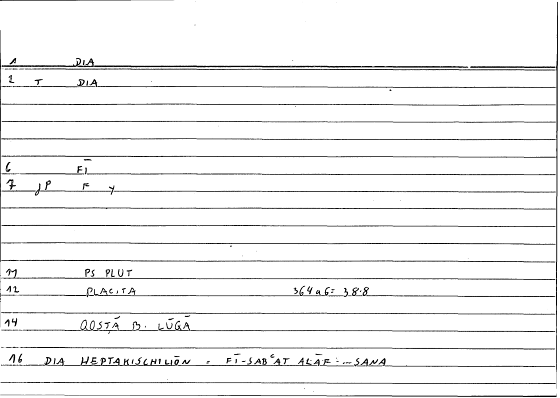 1 DIA
2 T DIA
6 FĪ
7 JP F Y
11 PS PLUT
12 PLACITA 364a6 = 38.8
14 QOSṬĀ B. LŪQĀ
16 DIA HEPTAKISCHILIŌN = FĪ-SABᶜAT ALĀF ... SANA